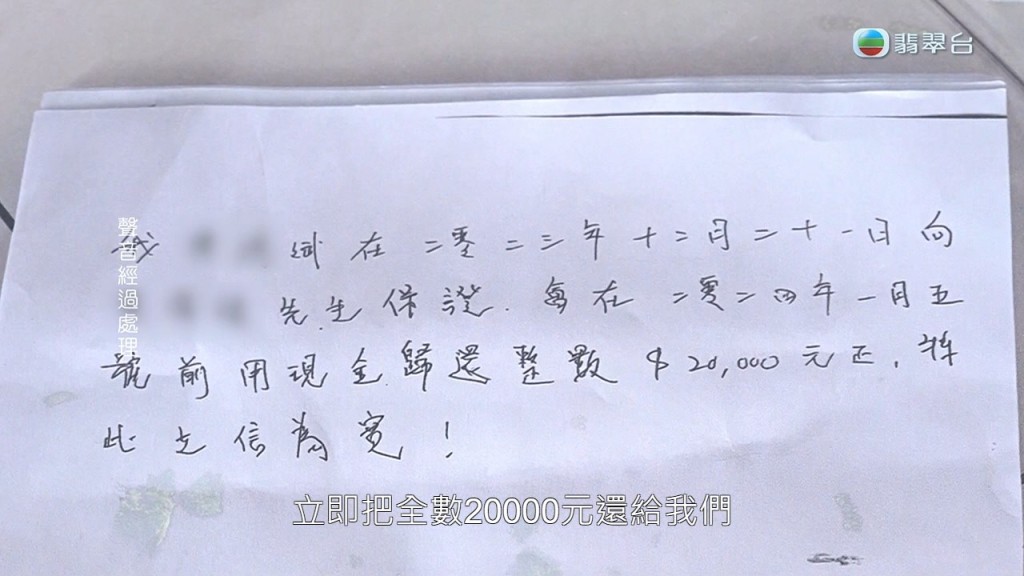 翡翠台
聲音經過處理
我 在二零二三年十二月二十一日向
先生保證．會在二零二四年一月五
號前用現金歸還整數$20,000元正，特
此立信為！
立即把全數20000元還給我們